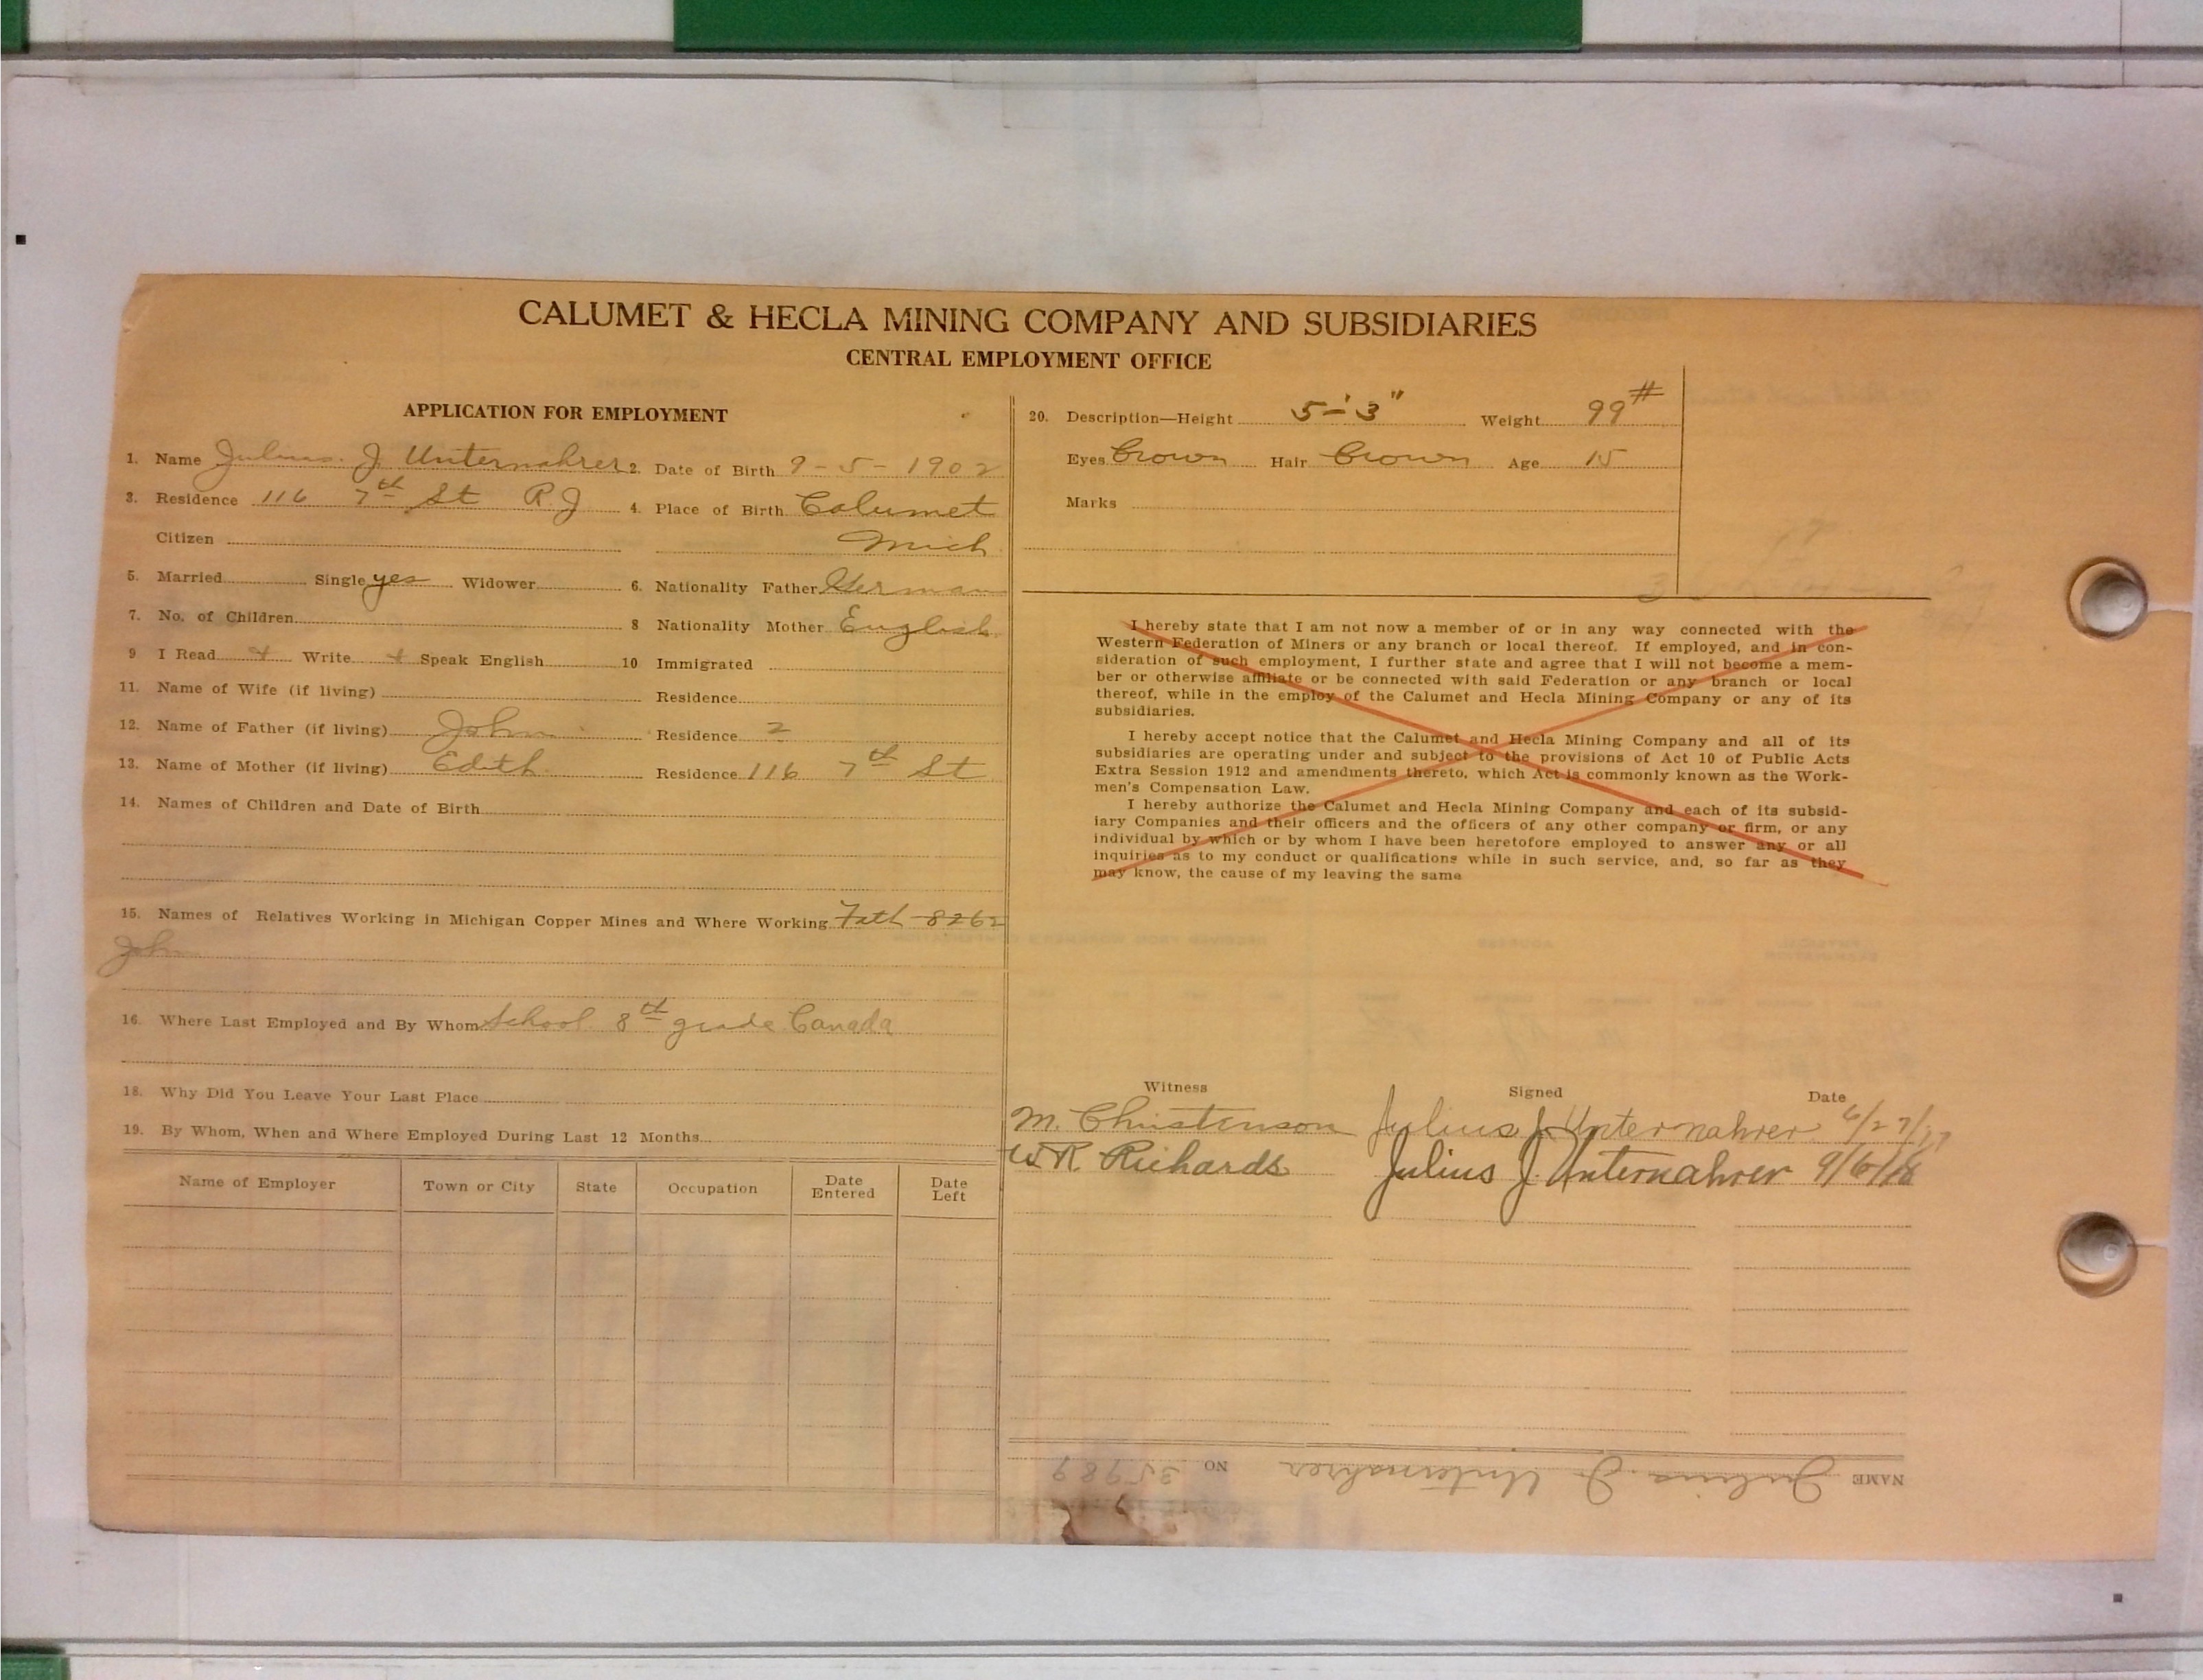 CALUMET & HECLA MINING COMPANY AND SUBSIDIARIES
CENTRAL EMPLOYMENT OFFICE
APPLICATION FOR EMPLOYMENT
1. Name Julius. J. Unternahrer 2. Date of Birth 9-5-1902
3. Residence 116 7th St R J 4. Place of Birth Calumet
Citizen Mich
5. Married Single yes Widower 6. Nationality Father German
7. No. of Children 8 Nationality Mother English
9 I Read Write Speak English 10 Immigrated
11. Name of Wife (if living) Residence
12. Name of Father (if living) John Residence 2
13. Name of Mother (if living) Edith Residence 116 7th St
14. Names of Children and Date of Birth
15. Names of Relatives Working in Michigan Copper Mines and Where Working Fath 8262
John
16. Where Last Employed and By Whom School 8th grade Canada
18. Why Did You Leave Your Last Place
19. By Whom, When and Where Employed During Last 12 Months
Name of Employer Town or City State Occupation Date Entered Date Left
20. Description—Height 5-'3" Weight 99#
Eyes Brown Hair Brown Age 15
Marks
I hereby state that I am not now a member of or in any way connected with the
Western Federation of Miners or any branch or local thereof. If employed, and in con-
sideration of such employment, I further state and agree that I will not become a mem-
ber or otherwise affiliate or be connected with said Federation or any branch or local
thereof, while in the employ of the Calumet and Hecla Mining Company or any of its
subsidiaries.
I hereby accept notice that the Calumet and Hecla Mining Company and all of its
subsidiaries are operating under and subject to the provisions of Act 10 of Public Acts
Extra Session 1912 and amendments thereto, which Act is commonly known as the Work-
men's Compensation Law.
I hereby authorize the Calumet and Hecla Mining Company and each of its subsid-
iary Companies and their officers and the officers of any other company or firm, or any
individual by which or by whom I have been heretofore employed to answer any or all
inquiries as to my conduct or qualifications while in such service, and, so far as they
may know, the cause of my leaving the same
Witness Signed Date
M. Christenson Julius J. Unternahrer 6/27/17
W R Richards Julius J. Unternahrer 9/6/18
NAME Julius. J. Unternahrer NO 35989